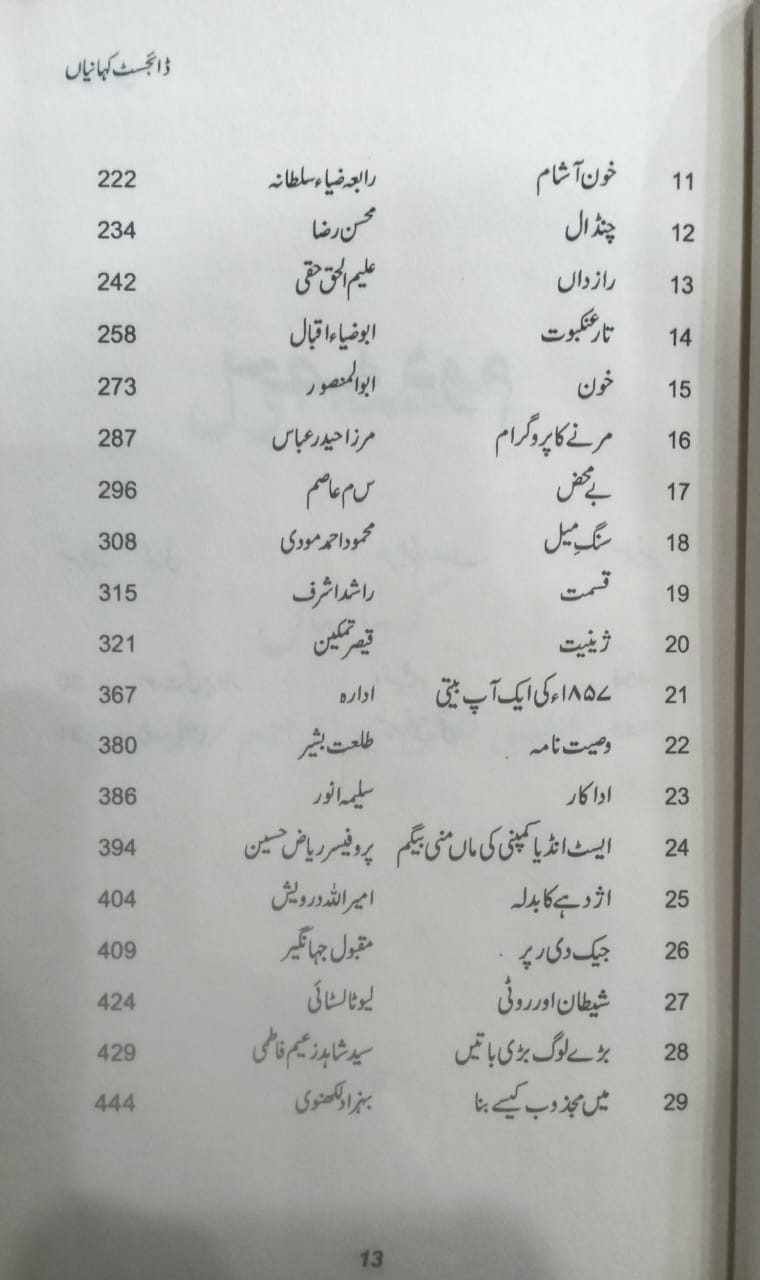 ڈائجسٹ کہانیاں
11 خون آشام رابعہ ضیاء سلطانہ 222
12 چنڈال محسن رضا 234
13 رازداں علیم الحق حقی 242
14 تار عنکبوت ابوضیاء اقبال 258
15 خون ابوالمنصور 273
16 مرنے کا پروگرام مرزا حیدر عباس 287
17 بے محض س م عاصم 296
18 سنگِ میل محمود احمد مودی 308
19 قسمت راشد اشرف 315
20 ژینیت قیصر تمکین 321
21 ۱۸۵۷ء کی ایک آپ بیتی ادارہ 367
22 وصیت نامہ طلعت بشیر 380
23 اداکار سلیمہ انور 386
24 ایسٹ انڈیا کمپنی کی ماں منی بیگم پروفیسر ریاض حسین 394
25 اژدہے کا بدلہ امیر اللہ درویش 404
26 جیک دی رپر مقبول جہانگیر 409
27 شیطان اور روٹی لیوٹالسٹائی 424
28 بڑے لوگ بڑی باتیں سید شاہد زعیم فاطمی 429
29 میں مجذوب کیسے بنا بہزاد لکھنوی 444
13